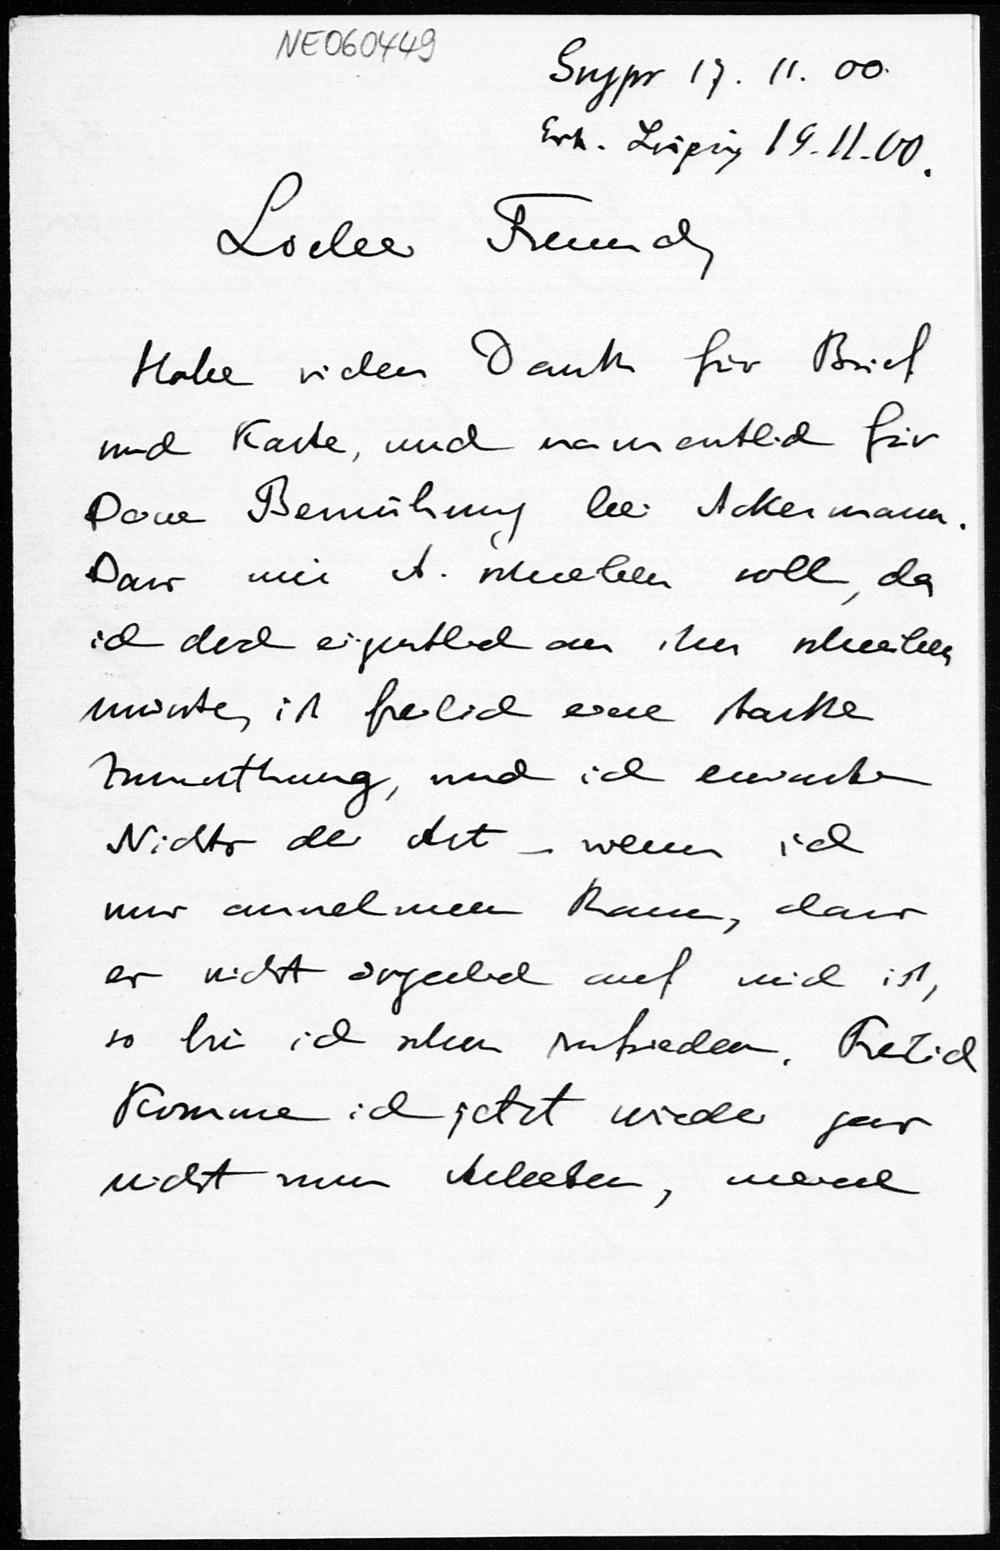 NE060449
Gnyps 17. 11. 00.
Erh. Leipzig 19.11.00.
Lieber Freund,
Habe vielen Dank für Brief
und Karte, und namentlich für
Deine Bemühung bei Ackermann.
Dass mir A. schreiben soll, da
ich doch eigentlich an ihn schreiben
müsste, ist freilich eine starke
Zumuthung, und ich erwarte
Nichts der Art – wenn ich
nur annehmen kann, dass
er nicht ärgerlich auf mich ist,
so bin ich schon zufrieden. Freilich
komme ich jetzt wieder gar
nicht zum Arbeiten, meine